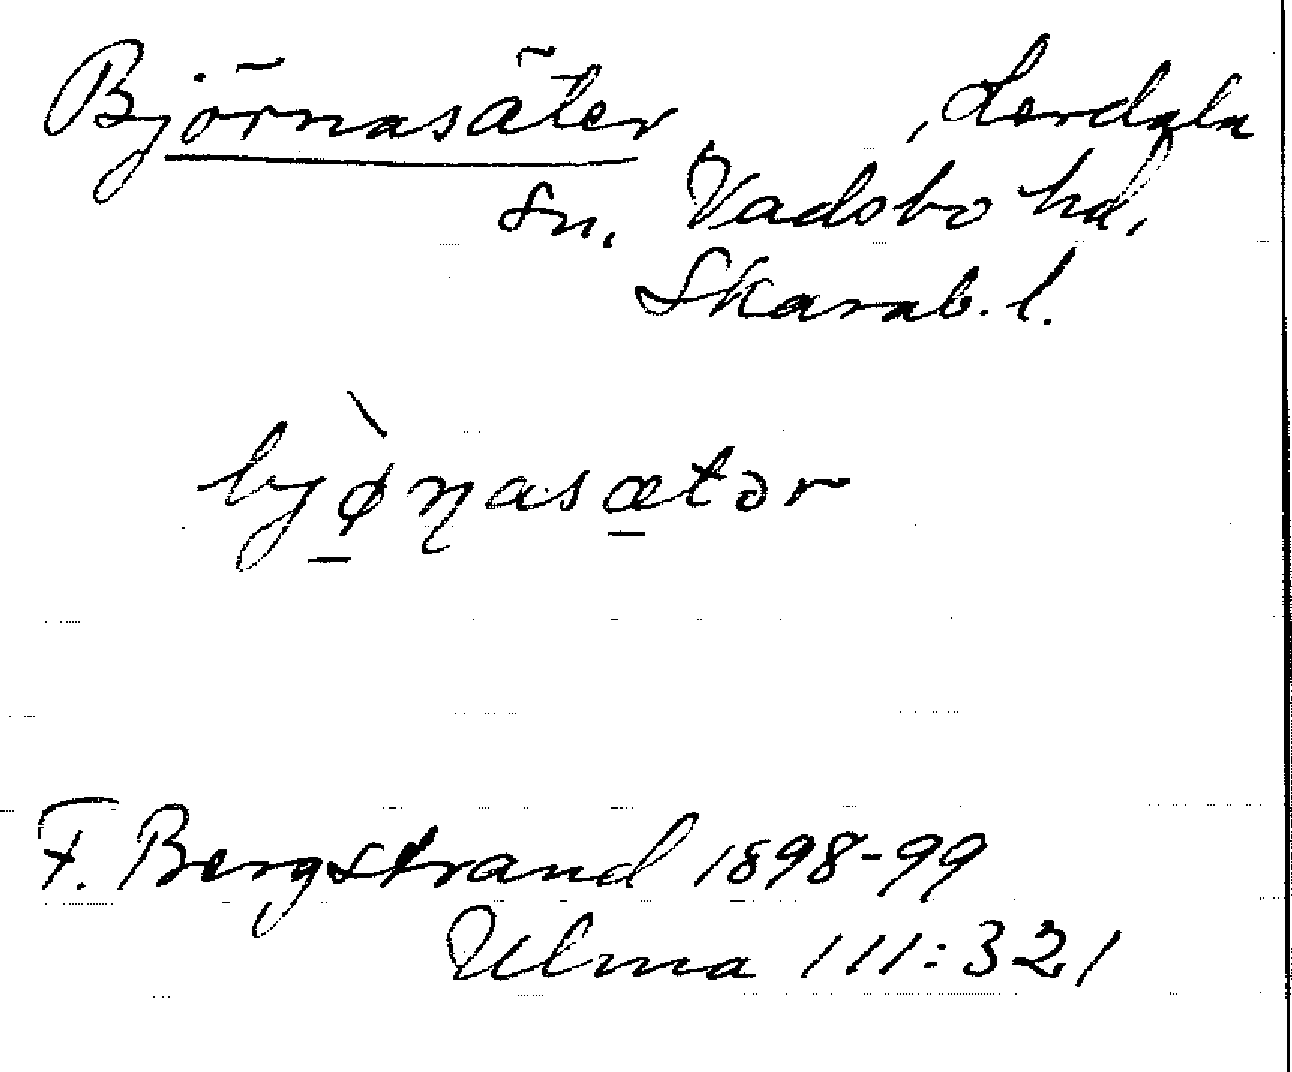 Björnasäter, Lerdala
sn, Vadsbo hd,
Skarab. l.
bjø̀ɳasætər
F. Bergstrand 1898-99
Ulma 111:321